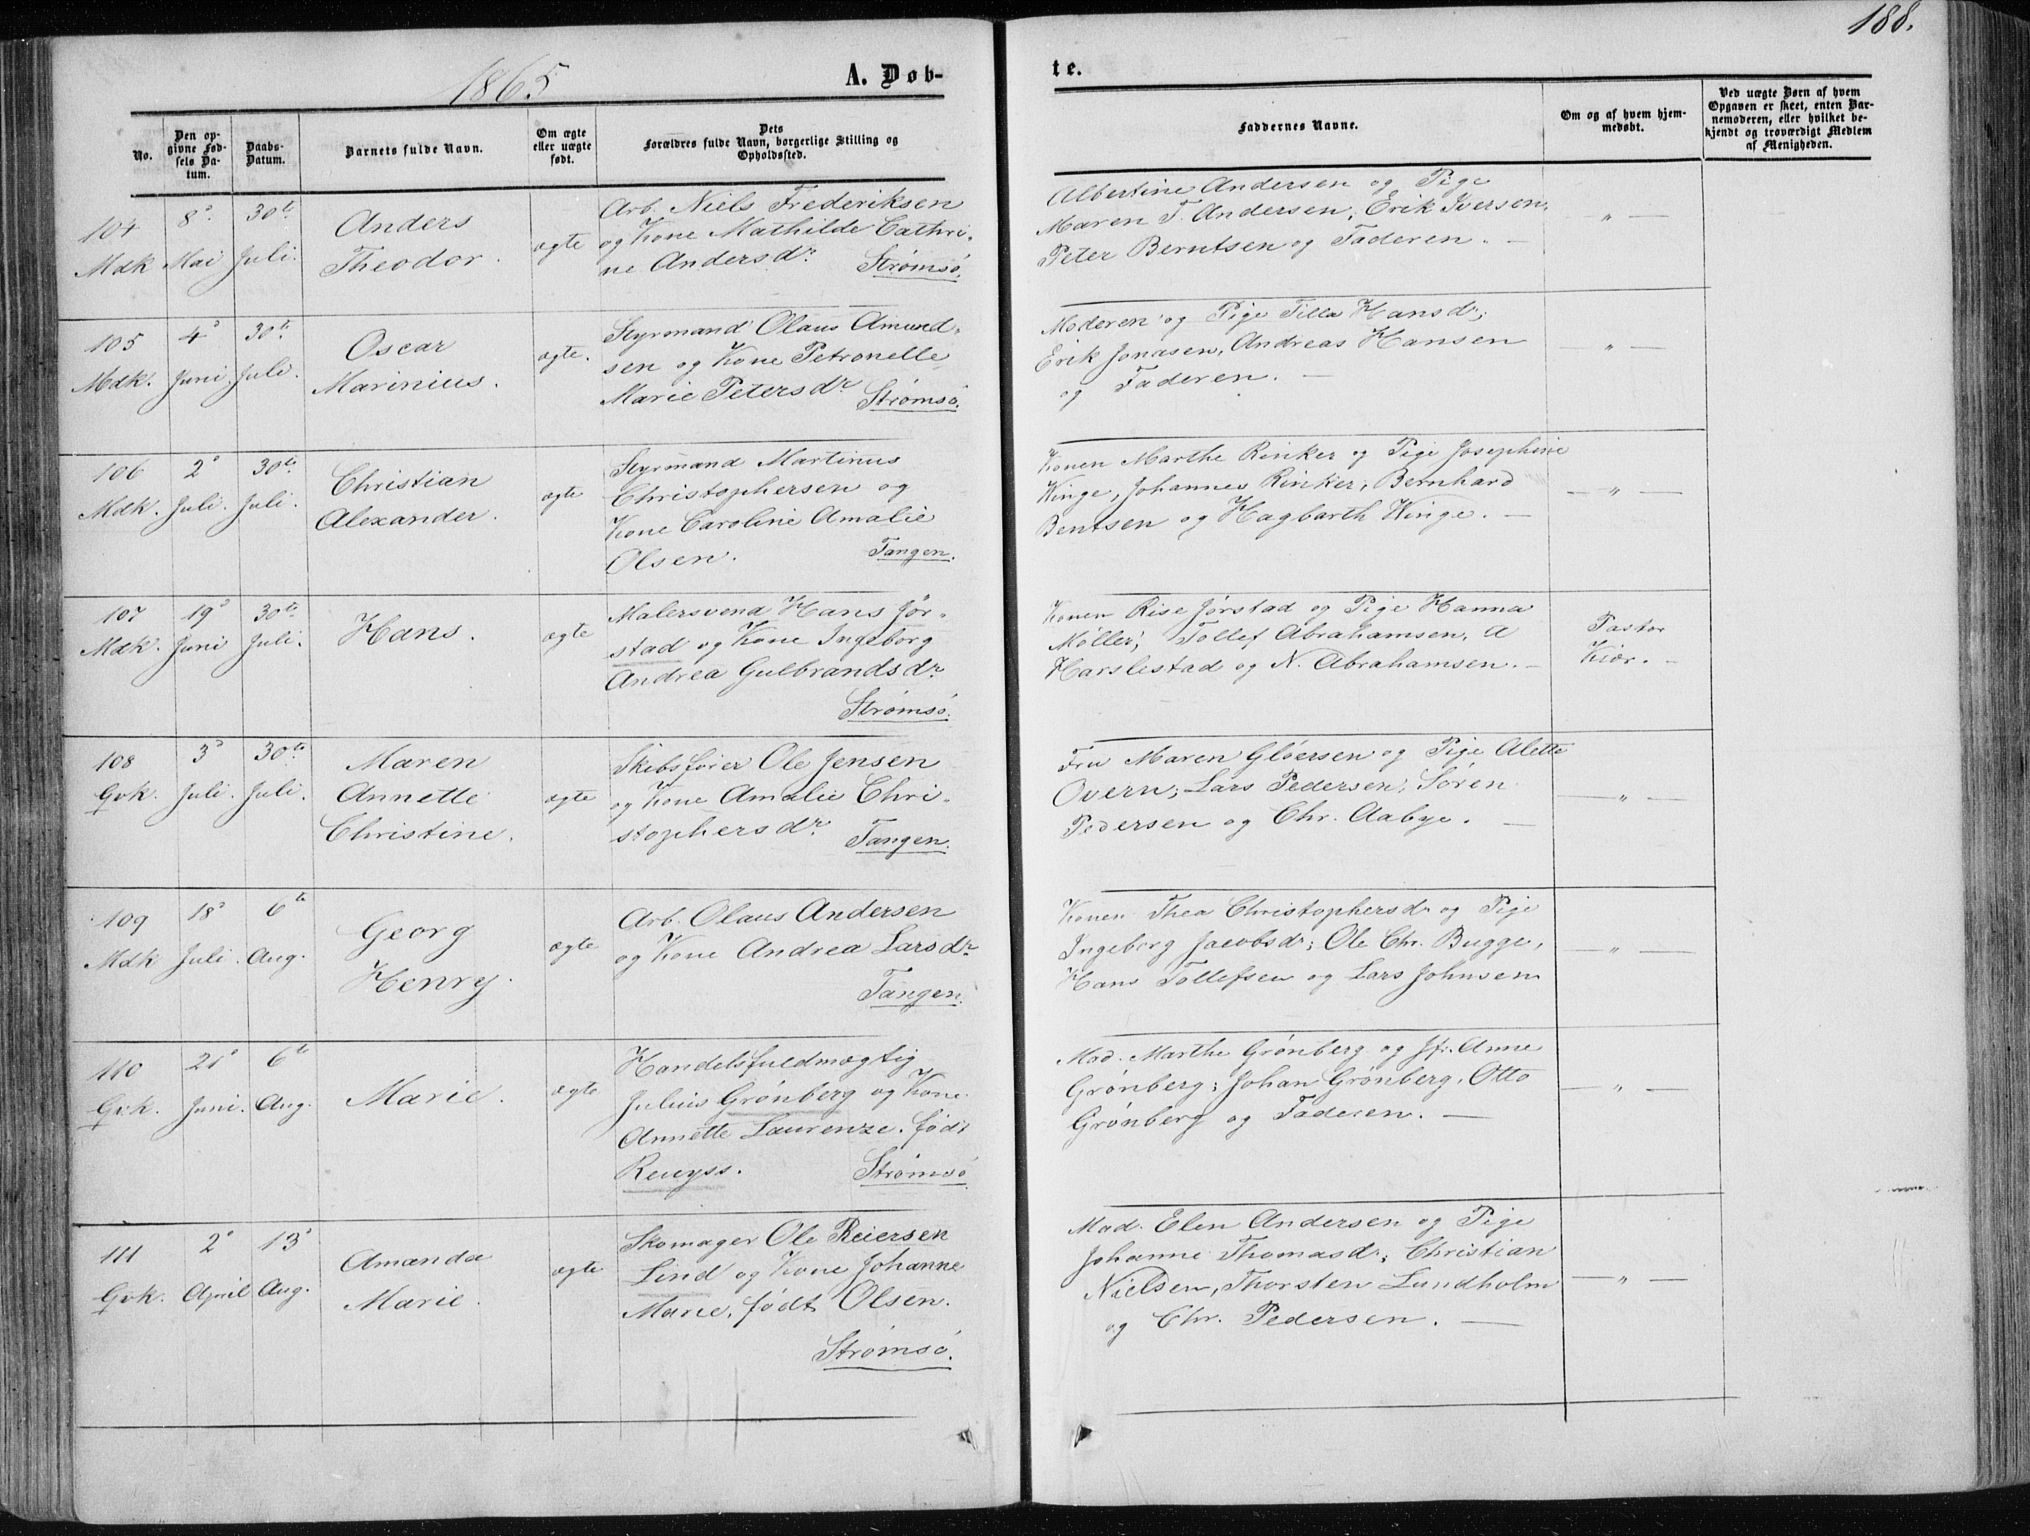 188.
1865
A. Døb-
te.
No.
Den op-
givne Fød-
sels Da-
tum.
Daabs-
Datum.
Barnets fulde Navn.
Om ægte
eller uægte
født.
Dets
Forældres fulde Navn, borgerlige Stilling og
Opholdssted.
Faddernes Navne.
Om og af hvem hjem-
medøbt.
Ved uægte Børn af hvem
Opgaven er skeet, enten Bar-
nemoderen, eller hvilket be-
kjendt og troværdigt Medlem
af Menigheden.
104 8de 30te
Mdk Mai Juli.
Anders
Theodor.
ægte
Arb. Niels Frederiksen
og Kone Mathilde Cathri-
ne Andersdr. Strømsø.
Albertine Andersen og Pige
Maren T. Andersen; Erik Iversen,
Peter Berntsen og Faderen. —
— „ —
105 4de 30te
Mdk. Juni Juli.
Oscar
Marinius.
ægte.
Styrmand Olaus Amund-
sen og Kone Petronelle
Marie Petersdr Strømsø.
Moderen og Pige Tilla Hansdr;
Erik Jonasen, Andreas Hansen
og Faderen. —
— „ —
106 2de 30te
Mdk. Juli. Juli.
Christian
Alexander.
ægte
Styrmand Martinus
Christophersen og
Kone Caroline Amalie
Olsen. Tangen.
Konen Marthe Rinker og Pige Josephine
Winge, Johannes Rinker, Bernhard
Bentsen og Hagbarth Winge. —
— „ —
107 19de 30te
Mdk. Juni Juli.
Hans.
ægte
Malersvend Hans Jør-
stad og Kone Ingeborg
Andrea Gulbrandsdr
Strømsø.
Konen Rise Jørstad og Pige Hanna
Møller; Tollef Abrahamsen, A
Harslestad og N. Abrahamsen. —
Pastor
Kiør. —
108 3de 30te
Qvk. Juli. Juli.
Maren
Annette
Christine.
ægte
Skibsfører Ole Jensen
og Kone Amalie Chri-
stophersdr. Tangen.
Fru Maren Gløersen og Pige Alette
Overn; Lars Pedersen, Søren
Pedersen og Chr. Aabye. —
— „ —
109 18de 6te
Mdk Juli. Aug.
Georg
Henry.
ægte
Arb. Olaus Andersen
og Kone Andrea Larsdr
Tangen.
Konen Thea Christophersdr og Pige
Ingeborg Jacobsdr; Ole Chr. Bugge,
Hans Tollefsen og Lars Johnsen
— „ —
110 21de 6te
Qvk. Juni. Aug.
Marie.
ægte
Handelsfuldmægtig
Julius Grønberg og Kone
Annette Laurenze, født
Reuyss. Strømsø
Mad. Marthe Grønberg og Jfr. Anne
Grønberg; Johan Grønberg, Otto
Grønberg og Faderen. —
— „ —
111 2de 13de
Qvk. April Aug.
Amanda
Marie.
ægte
Skomager Ole Reiersen
Lind og Kone Johanne
Marie, født Olsen.
Strømsø.
Mad. Elen Andersen og Pige
Johanne Thomasdr; Christian
Nielsen, Thorsten Lundholm
og Chr. Pedersen. —
— „ —